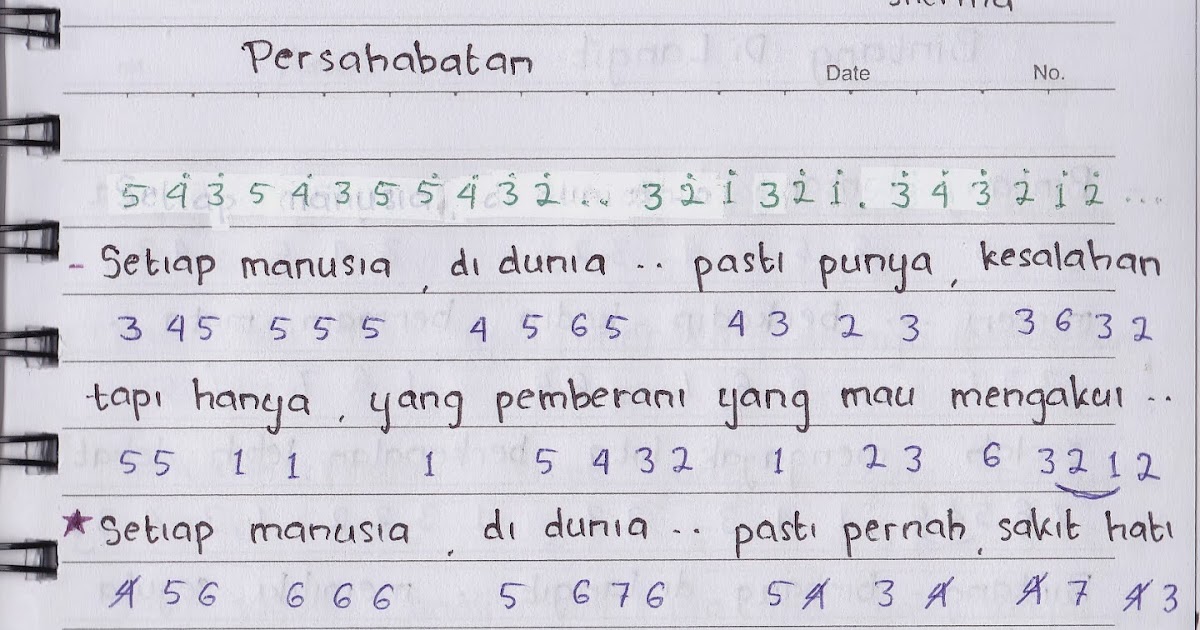 Persahabatan
Date No.
5 4̇ 3̇ 5 4̇ 3 5 5̇ 4̇ 3̇ 2̇ ... 3̇ 2̇ 1̇ 3 2̇ 1̇. 3̇ 4̇ 3̇ 2̇ 1̇ 2̇ ...
- Setiap manusia, di dunia .. pasti punya, kesalahan
3 4 5 5 5 5 4 5 6 5 4 3 2 3 3 6 3 2
tapi hanya, yang pemberani yang mau mengakui ..
5 5 1 1 1 5 4 3 2 1 2 3 6 3 2 1 2
★ Setiap manusia, di dunia .. pasti pernah, sakit hati
4̸ 5 6 6 6 6 5 6 7 6 5 4̸ 3 4̸ 4̸ 7 4̸ 3